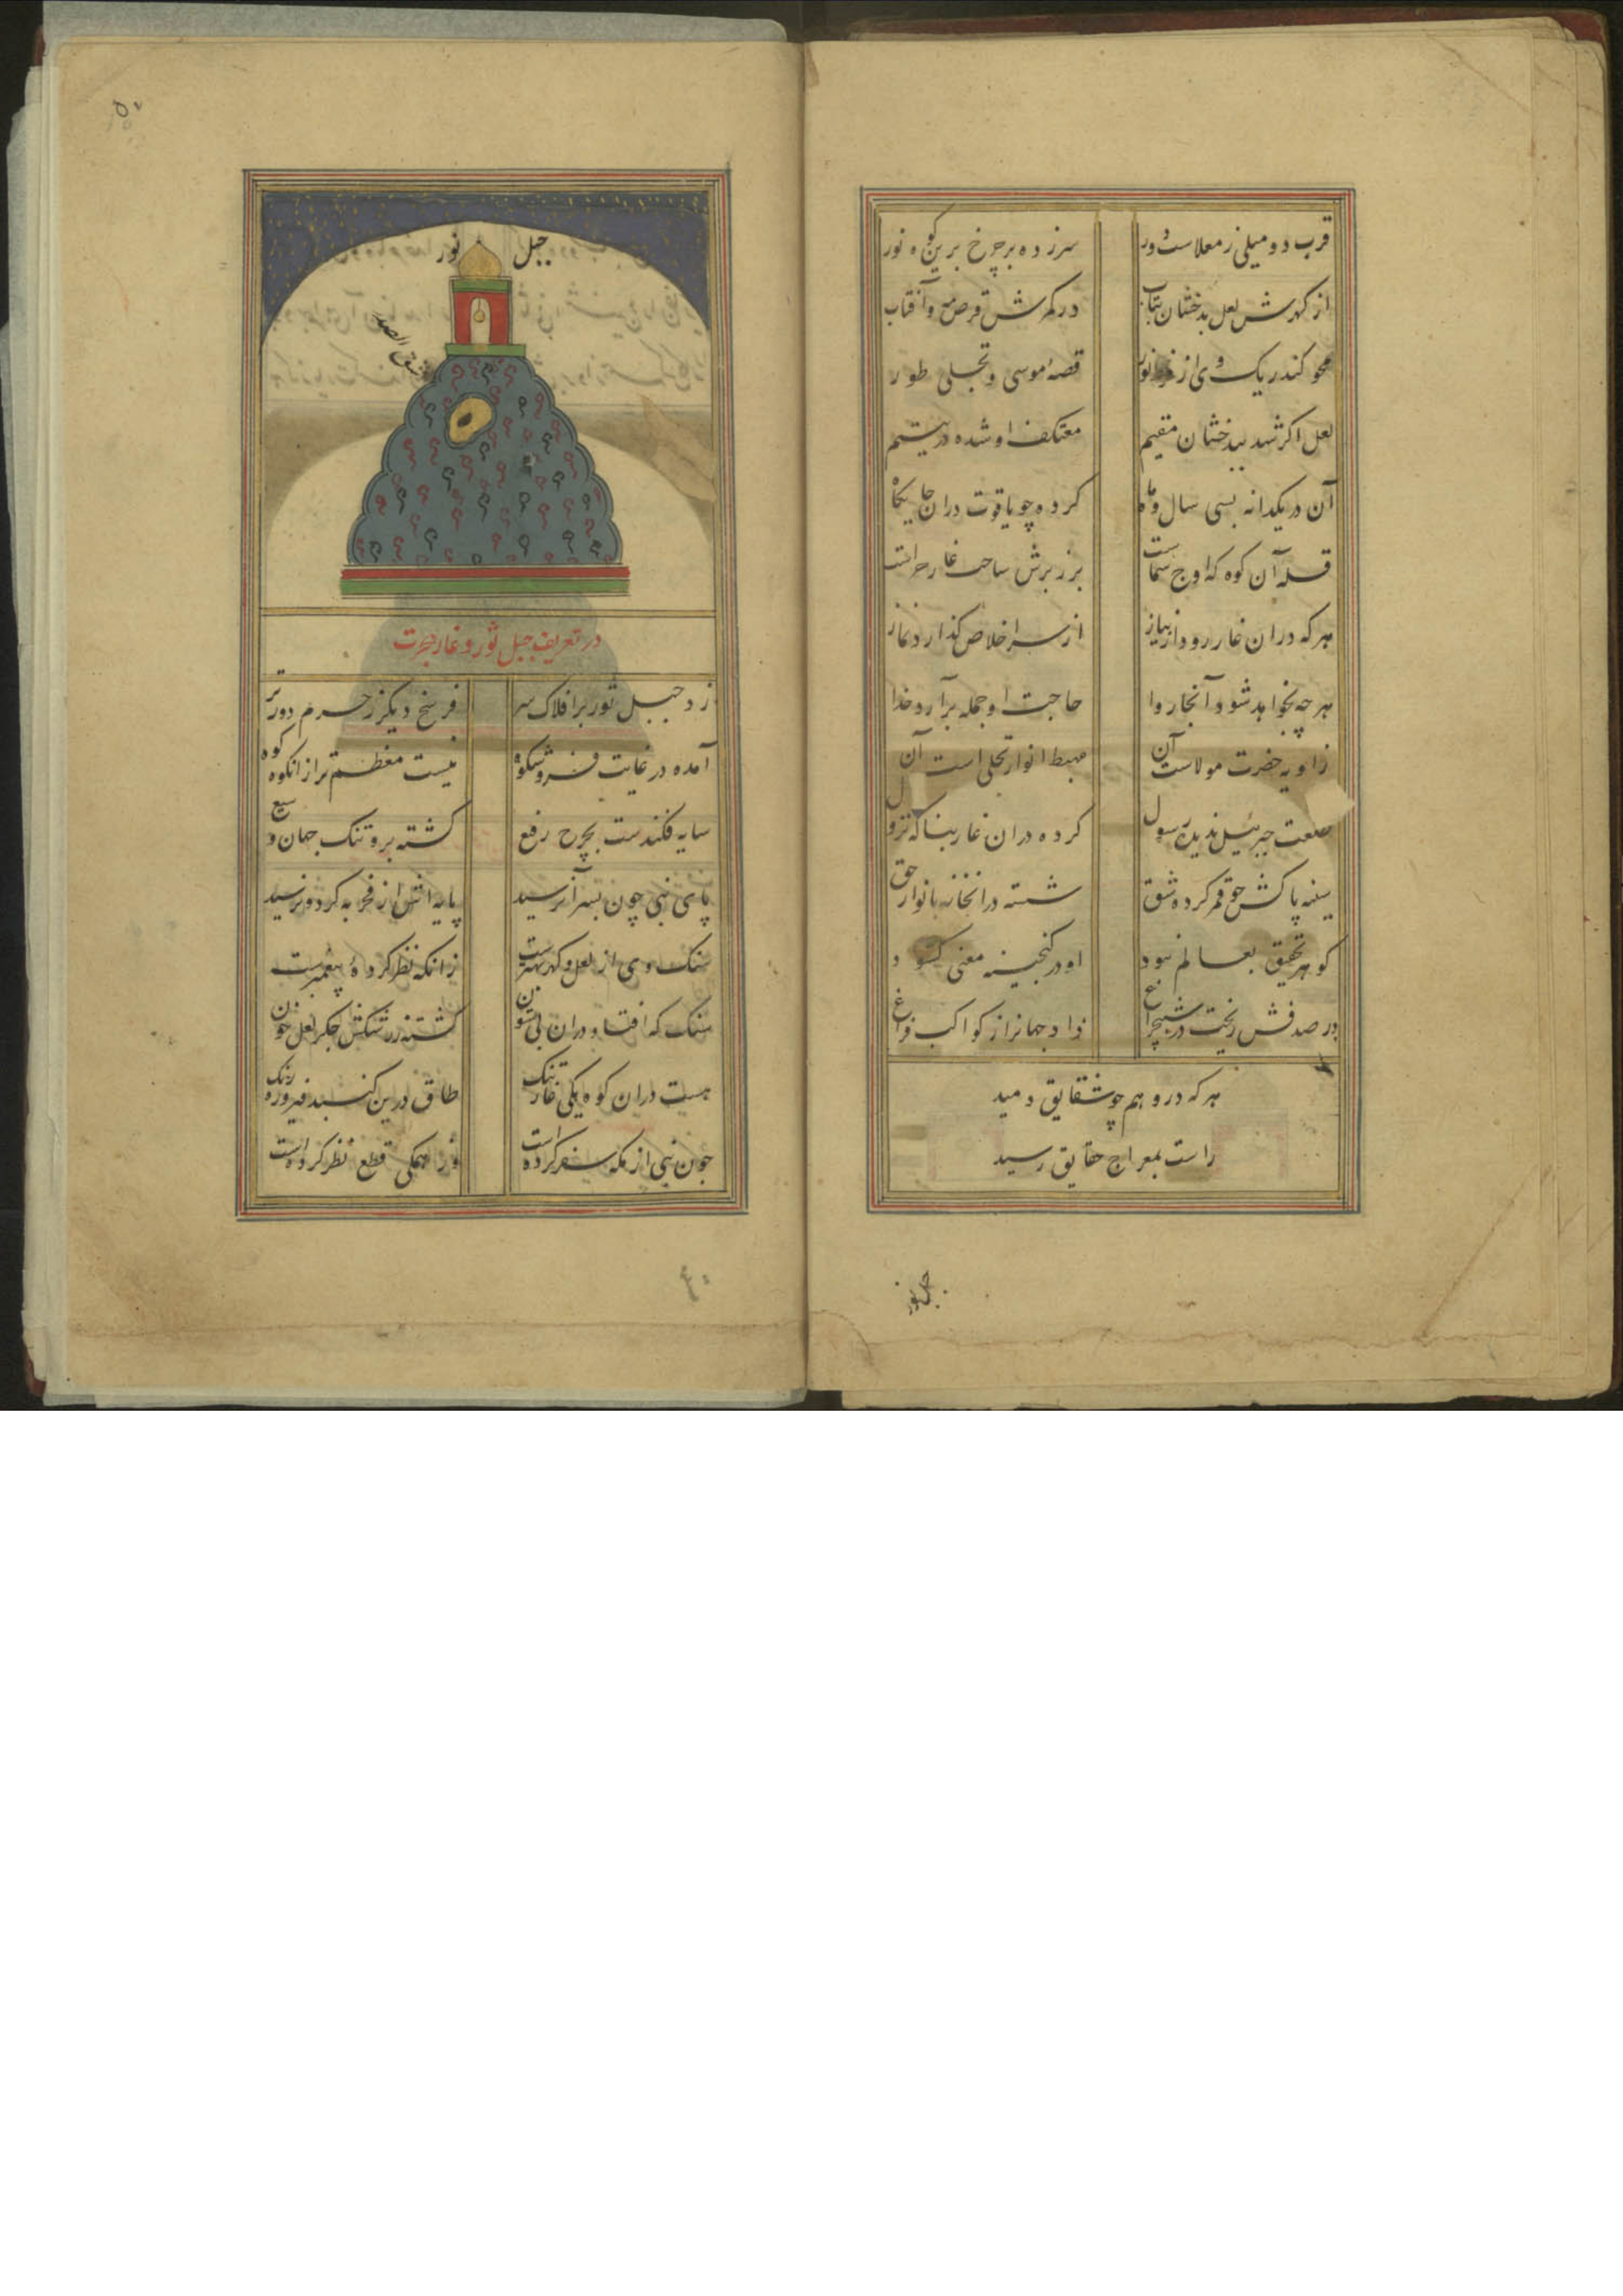 قرب دو میلی ز معلاست دور
سر زده بر چرخ برین کوه نور
از کهرش لعل بدخشان بتاب
در کمرش قرص مه و آفتاب
محو کند ریک وی از فر نور
قصه موسی و تجلی طور
لعل اکر شد ببدخشان مقیم
معتکف او شده در یتیم
آن در یکدانه بسی سال و ماه
کرده چو یاقوت دران جایکاه
قله آن کوه که اوج سماست
بر زبرش ساحت غار حراست
هر که دران غار رود از نیاز
از سر اخلاص کذارد نماز
هر چه بخواهد شود آنجا روا
حاجت او جمله برآرد خدا
زاویه حضرت مولاست آن
مهبط انوار تجلی است آن
طلعت جبرئیل ندیده رسول
کرده دران غار بنا که نزول
سینه پاکش چو قمر کرده شق
شسته در آنخانه بانوار حق
کوهر تحقیق بعالم نبود
او در کنجینه معنی کشود
در صدفش ریخت در شبچراغ
داد جهانرا ز کواکب فراغ
هر که درو هم چو شقایق دمید
راست بمعراج حقایق رسید
جبل نور
جبل نور
شق الصدر
در تعریف جبل ثور و غار هجرت
زد جبل ثور بر افلاک سر
فرسخ دیکر ز حرم دورتر
آمده در غایت فر و شکوه
نیست معظم تر ازانکوه کوه
سایه فکندست بچرخ رفیع
کشته برو تنک جهان وسیع
پای نبی چون بسر آن رسید
پایه اش از فخر به کردون رسید
سنک وی از لعل و کهر بهترست
زانکه نظر کرده پیغمبرست
سنک که افتاده دران بی ستون
کشته ز رشکش جکر لعل خون
هست دران کوه یکی غار تنک
طاق درین کنبد فیروزه رنک
چون نبی از مکه سفر کرده است
وز همکی قطع نظر کرده است